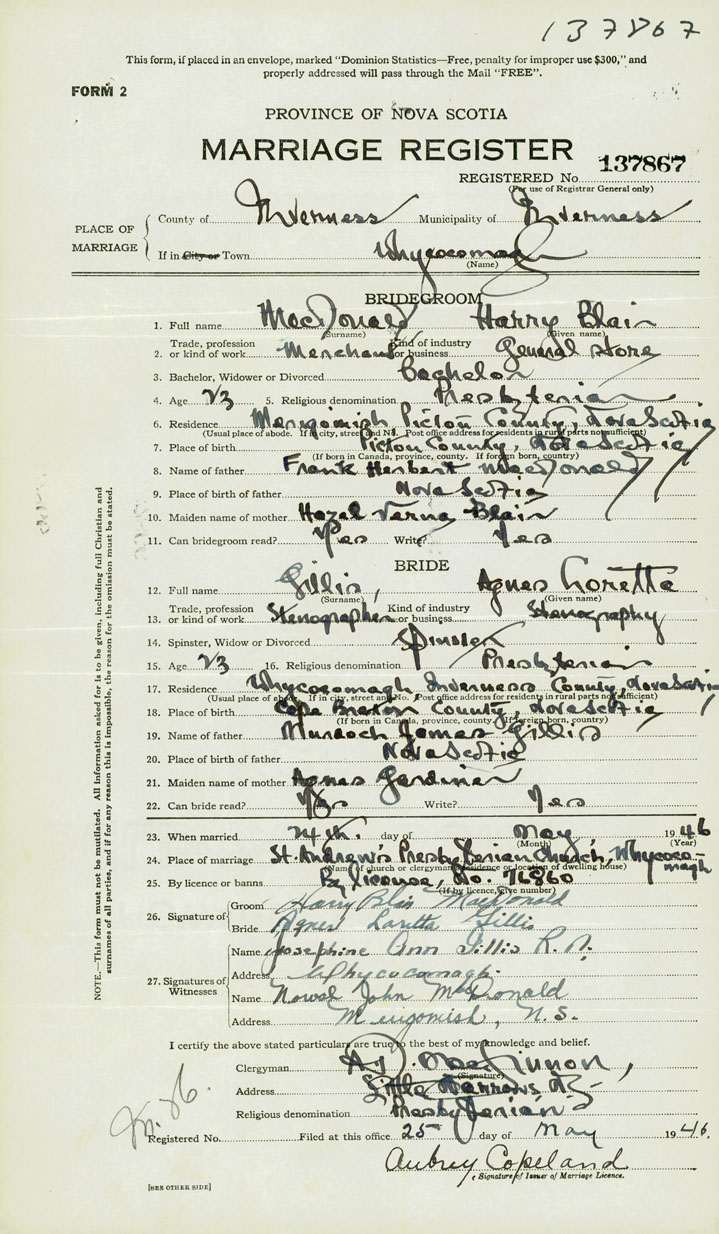 137867
This form, if placed in an envelope, marked "Dominion Statistics—Free, penalty for improper use $300," and
properly addressed will pass through the Mail "FREE".
FORM 2
PROVINCE OF NOVA SCOTIA
MARRIAGE REGISTER
REGISTERED No. 137867
(For use of Registrar General only)
PLACE OF MARRIAGE
County of Inverness Municipality of Inverness
If in City or Town Whycocomagh
(Name)
BRIDEGROOM
1. Full name MacDonald Harry Blair
(Surname) (Given name)
2. Trade, profession or kind of work Merchant Kind of industry or business General Store
3. Bachelor, Widower or Divorced Bachelor
4. Age 23 5. Religious denomination Presbyterian
6. Residence Merigomish Pictou County, Nova Scotia
(Usual place of abode. If in city, street and No. Post office address for residents in rural parts not sufficient)
7. Place of birth Pictou County, Nova Scotia
(If born in Canada, province, county. If foreign born, country)
8. Name of father Frank Herbert MacDonald
9. Place of birth of father Nova Scotia
10. Maiden name of mother Hazel Verna Blair
11. Can bridegroom read? Yes Write? Yes
BRIDE
12. Full name Gillis, Agnes Loretta
(Surname) (Given name)
13. Trade, profession or kind of work Stenographer Kind of industry or business Stenography
14. Spinster, Widow or Divorced Spinster
15. Age 23 16. Religious denomination Presbyterian
17. Residence Whycocomagh Inverness County, Nova Scotia
(Usual place of abode. If in city, street and No. Post office address for residents in rural parts not sufficient)
18. Place of birth Cape Breton County, Nova Scotia
(If born in Canada, province, county. If foreign born, country)
19. Name of father Murdoch James Gillis
20. Place of birth of father Nova Scotia
21. Maiden name of mother Agnes Gardiner
22. Can bride read? Yes Write? Yes
23. When married 24th. day of May 1946
(Month) (Year)
24. Place of marriage St. Andrew's Presbyterian Church, Whycocomagh
(Name of church or clergyman's residence or location of dwelling house)
25. By licence or banns By license, No. 76860
(If by licence, give number)
26. Signature of
Groom Harry Blair MacDonald
Bride Agnes Loretta Gillis
27. Signatures of Witnesses
Name Josephine Ann Gillis R.N.
Address Whycocomagh.
Name John MacDonald
Address Merigomish, N.S.
I certify the above stated particulars are true to the best of my knowledge and belief.
Clergyman MacKinnon,
(Signature)
Address Little Narrows, N.S.
Religious denomination Presbyterian
Registered No. Filed at this office 25 day of May 1946.
Aubrey Copeland
Signature of Issuer of Marriage Licence.
[SEE OTHER SIDE]
NOTE.—This form must not be mutilated. All information asked for is to be given, including full Christian and
surnames of all parties, and if for any reason this is impossible, the reason for the omission must be stated.